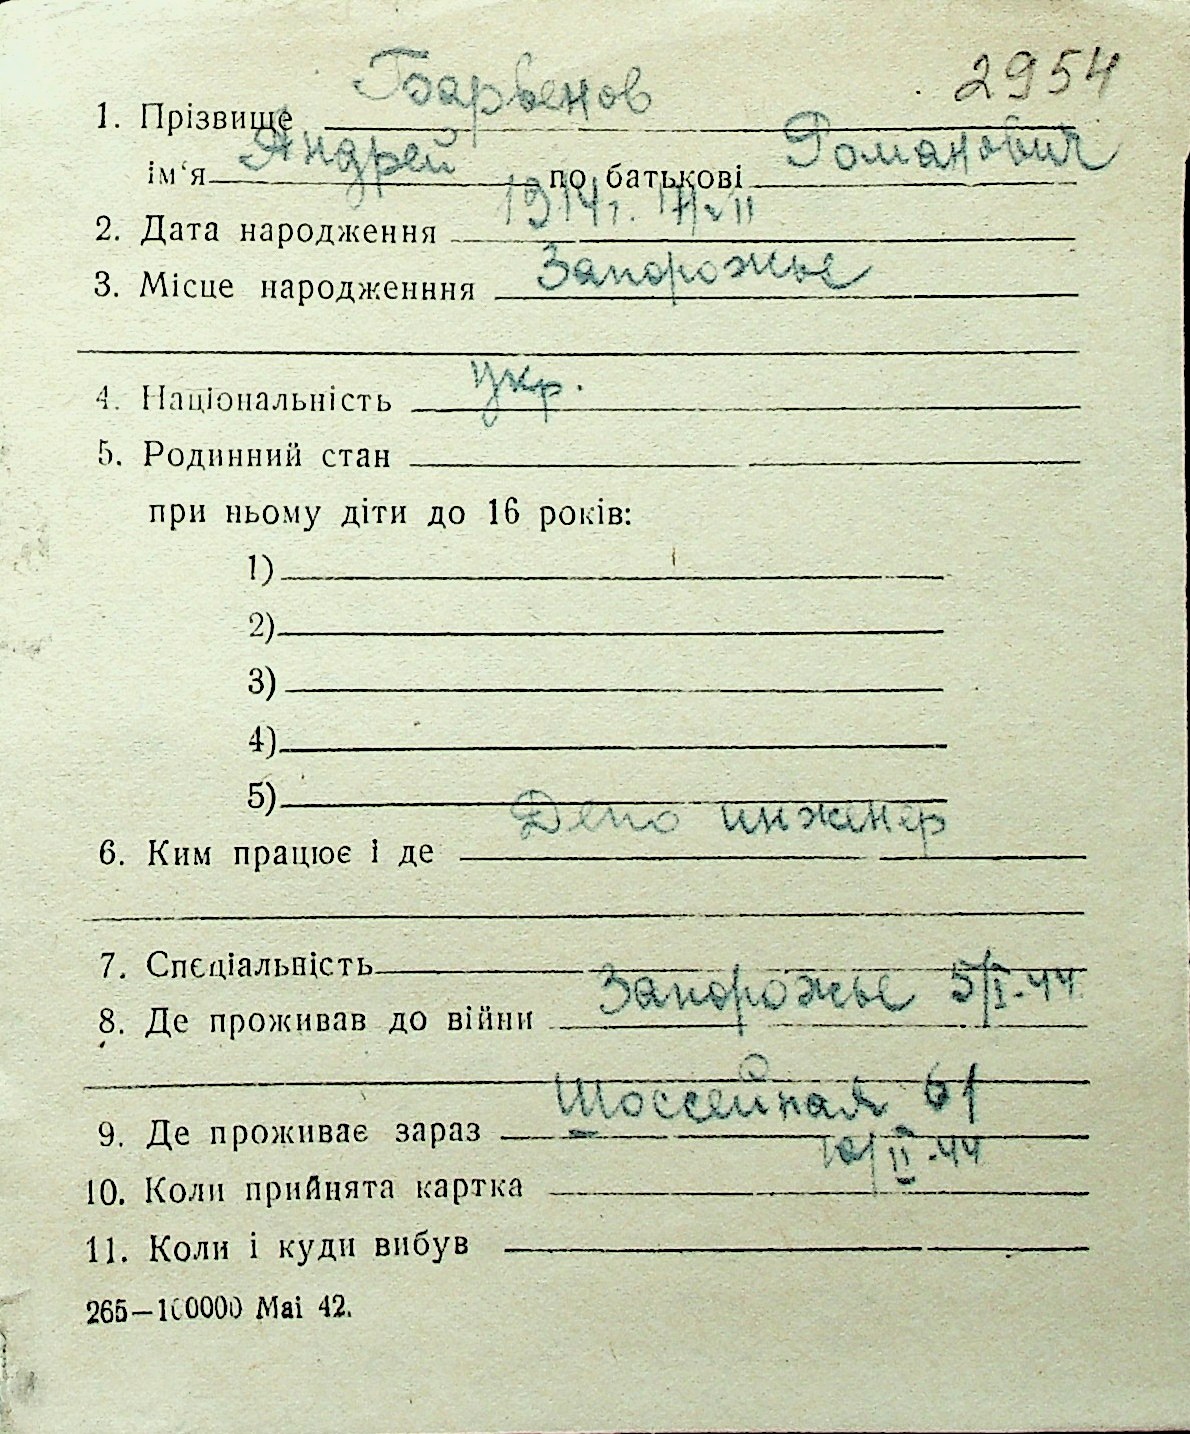 2954
1. Прізвище Барвенов
ім‘я Андрей по батькові Романович
2. Дата народження 1914г.
3. Місце народженння Запорожье
4. Національність укр.
5. Родинний стан
при ньому діти до 16 років:
1)
2)
3)
4)
5)
6. Ким працює і де Депо инженер
7. Спеціальність
8. Де проживав до війни Запорожье 5/I-44
9. Де проживає зараз Шоссейная 61
10. Коли прийнята картка
11. Коли і куди вибув
265—100000 Mai 42.